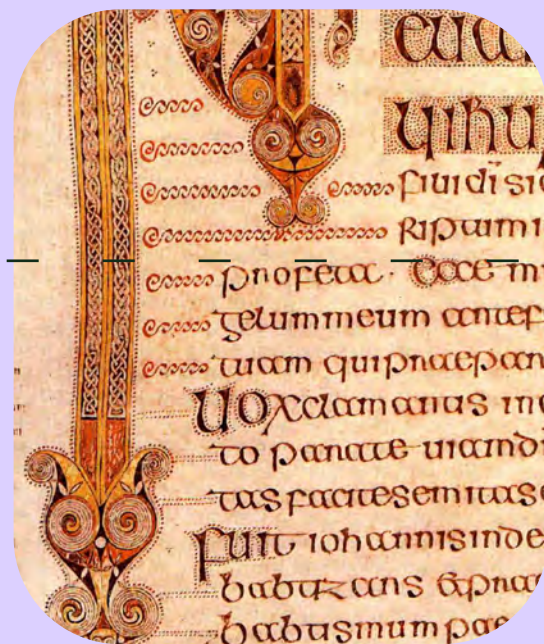 eua
ihu
fili di sic
riptum i
profeta · Ecce m
gelum meum ante f
tuam qui praepar
Uox clamantis in
to parate uiam d
tas facite semitas e
fuit iohannis in de
babtizans & prae
babtismum pae